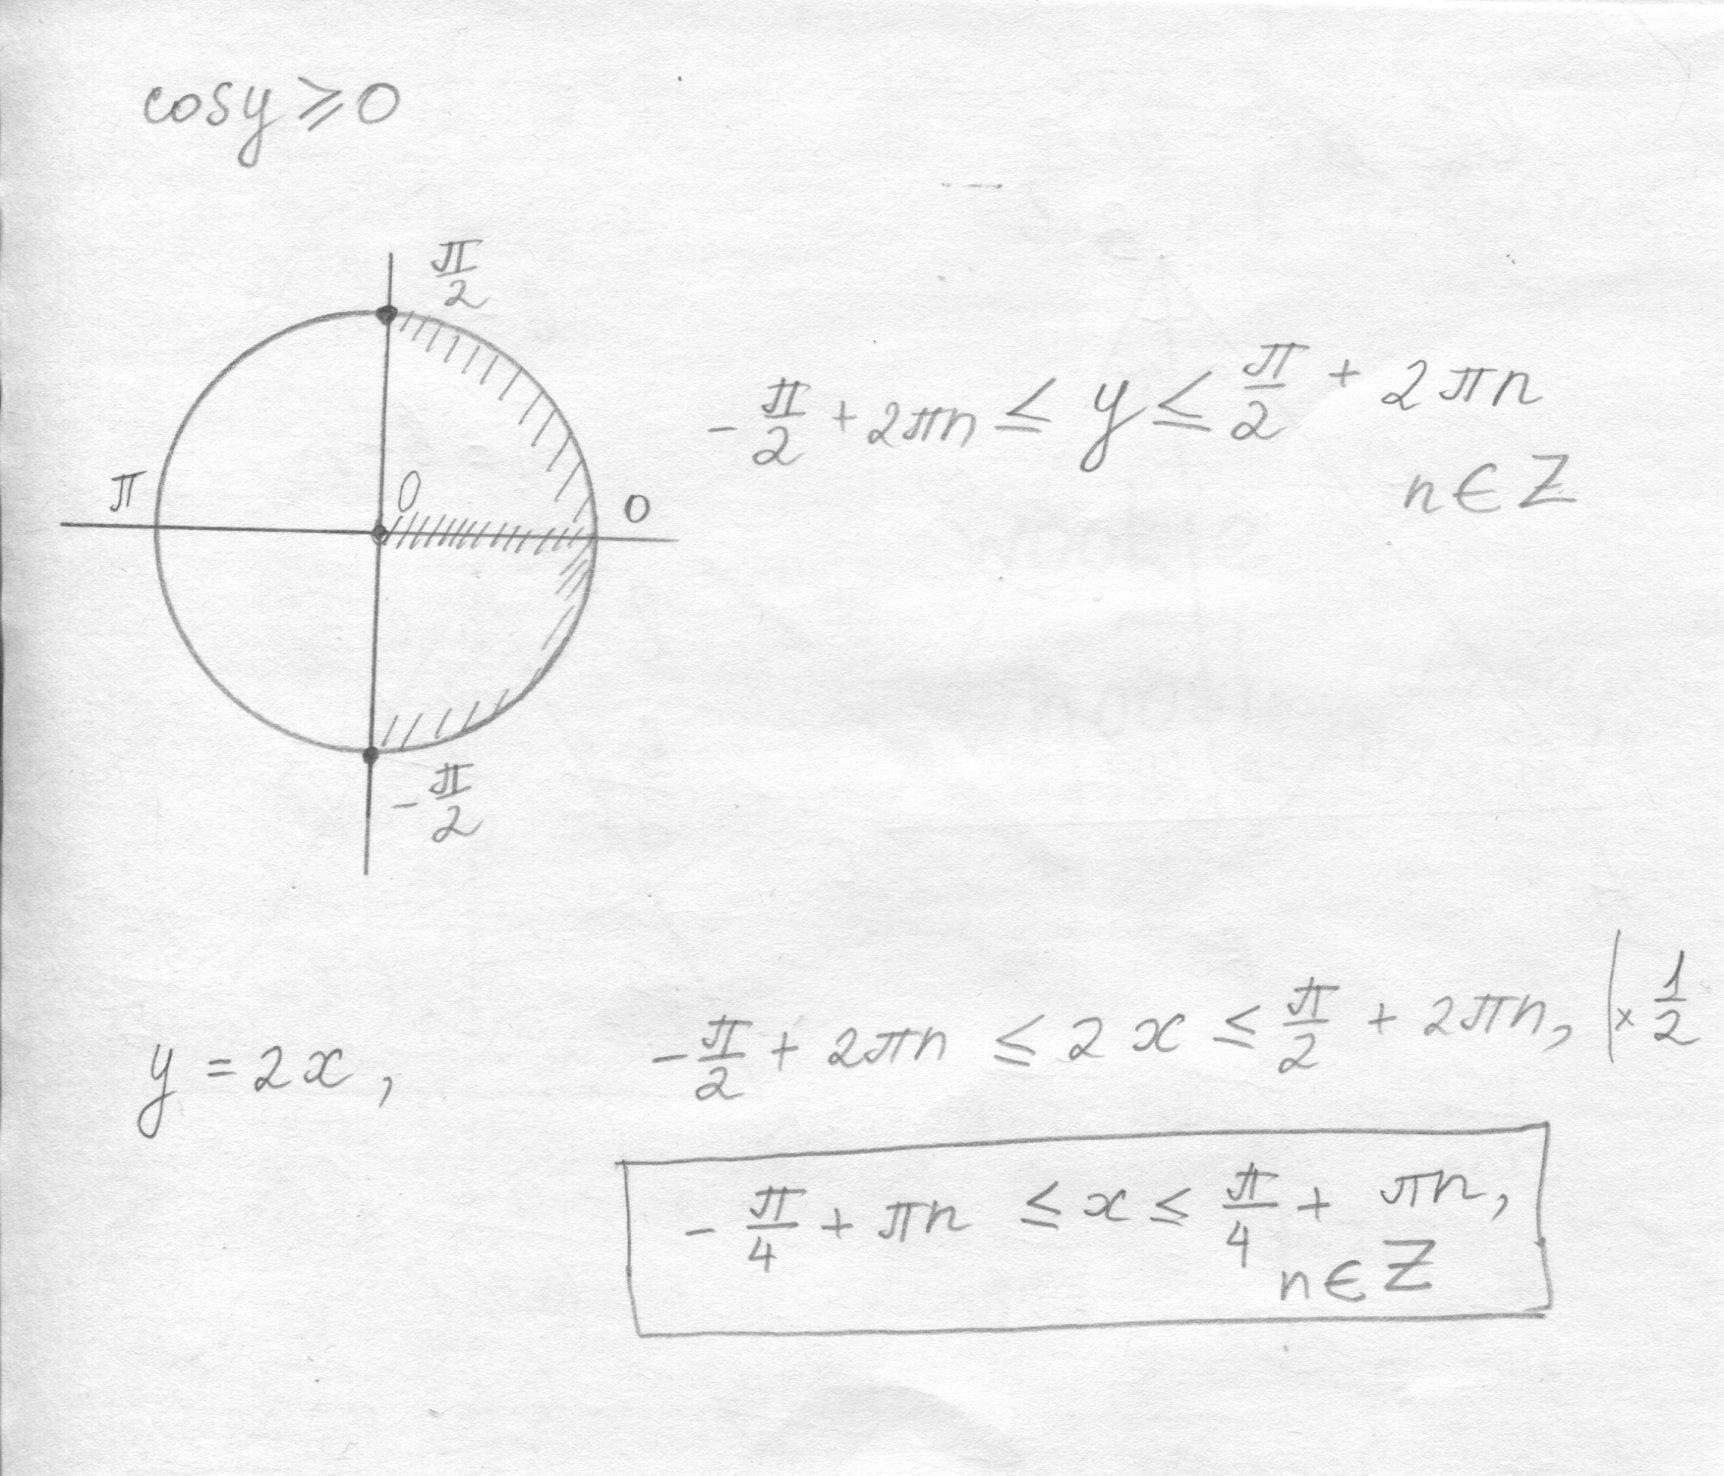 cosy ⩾ 0
π/2
π
0
0
-π/2
-π/2 + 2πn ≤ y ≤ π/2 + 2πn
n ∈ Z
y = 2x,
-π/2 + 2πn ≤ 2x ≤ π/2 + 2πn, | × 1/2
-π/4 + πn ≤ x ≤ π/4 + πn,
n ∈ Z